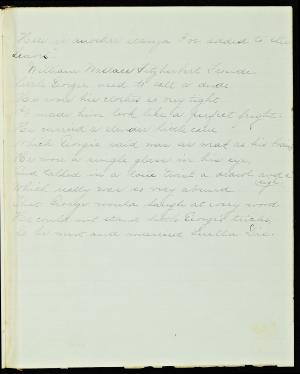 Here is another stanza I've added to the
"
William Wallace Fitzherbert Trvide
Little Georgie used to call a dude
He wore his clothes so very tight
It made him look like a perfect fright.
He carried a slender little cane
Which Georgie said was as neat as his brain
He wore a single glass in his eye,
And talked in a tone twixt a drawl and a
sigh
Which really was so very absurd
That George would laugh at every word
He could not stand little Georgie's tricks
So he went and married Luella